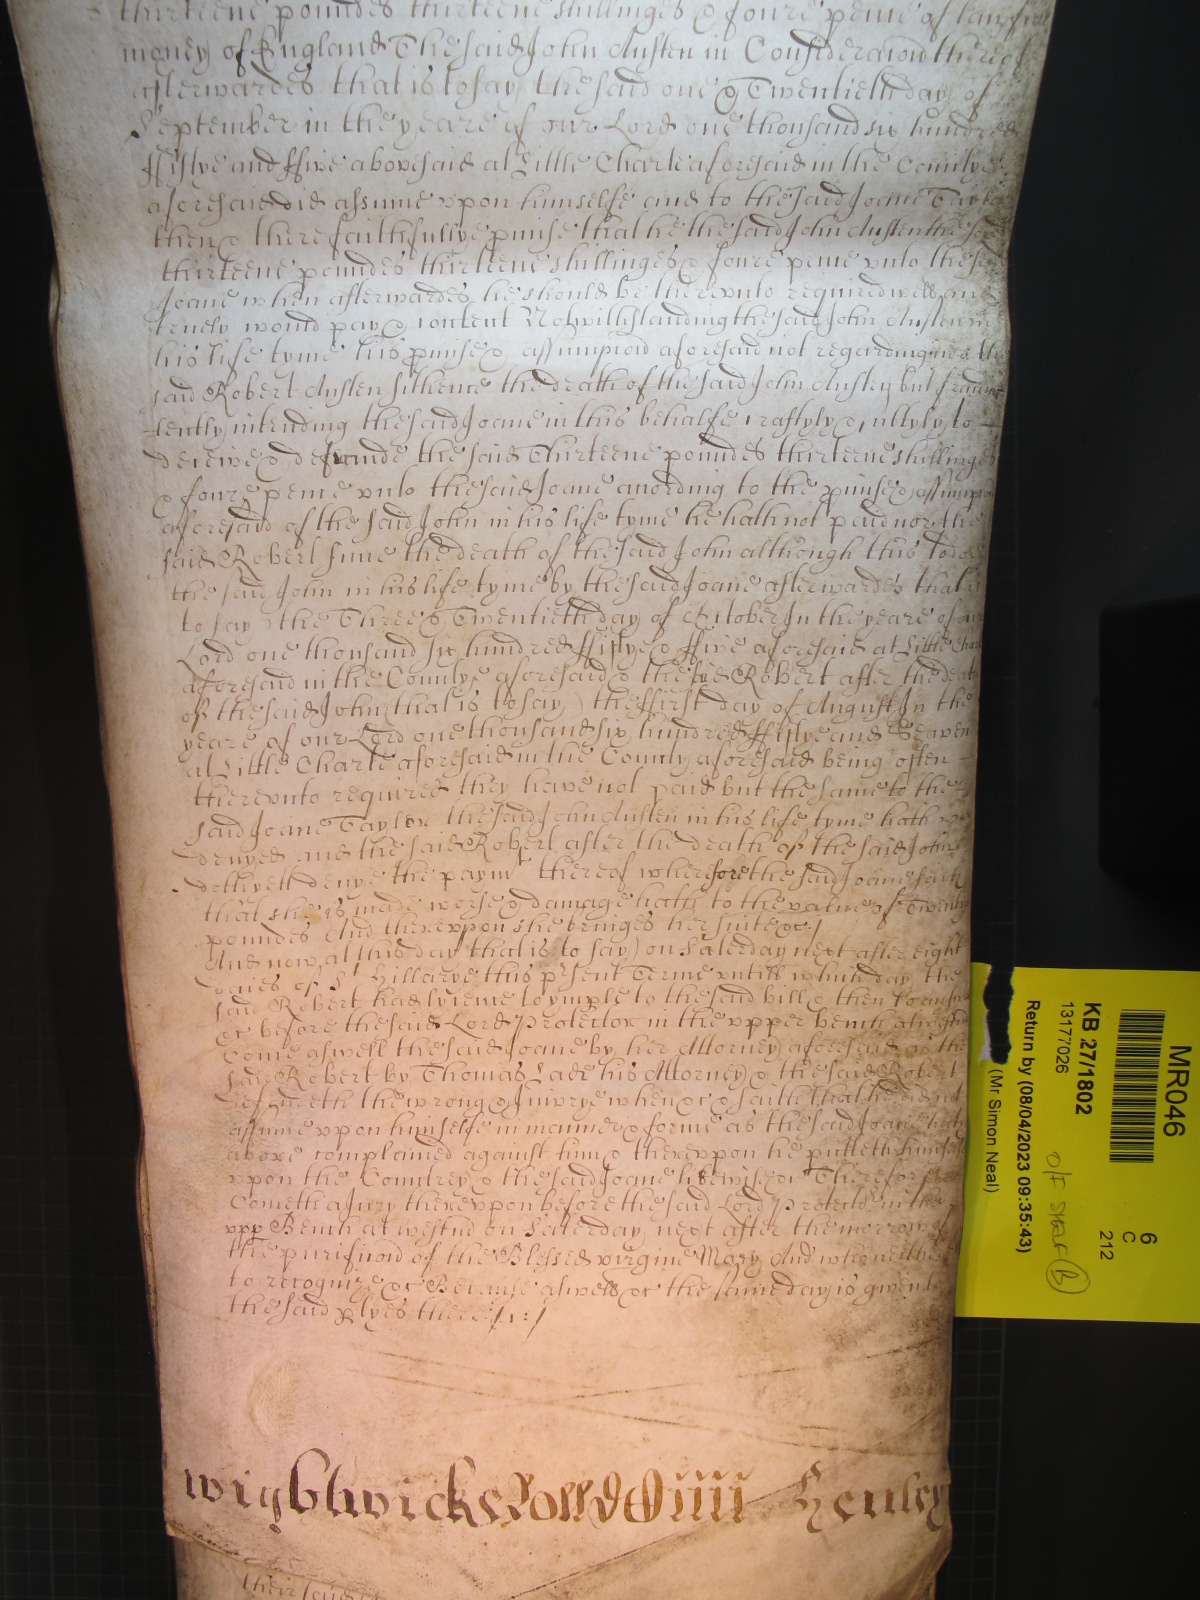 thirteene poundes thirteene shillinges & foure pence of lawfull
money of England The said John Austen in Consideracion thereof
afterwardes that is to say the said one & Twentieth day of
September in the yeare of our Lord one thousand six hundred
ffiftye and ffive abovesaid at Little Charte aforesaid in the Countye
aforesaid did assume upon himselfe and to the said Joane Taylor
then & there faithfullye promise that he the said John Austen the said
thirteene poundes thirteene shillinges & foure pence unto the said
Joane when afterwardes he should be thereunto required well and
truely would pay & content Notwithstanding the said John Austen in
his life tyme his promise & assumpcion aforesaid not regarding nor the
said Robert Austen sithence the death of the said John Austen but fraudu
lently intending the said Joane in this behalfe craftyly & subtyly to
deceive & defraude the said Thirteene poundes thirteene shillinges
& foure pence unto the said Joane according to the promise & assumpcion
aforesaid of the said John in his life tyme he hath not paid nor the
said Robert since the death of the said John although this to doe
the said John in his life tyme by the said Joane afterwardes that is
to say the Three & Twentieth day of October In the yeare of our
Lord one thousand six hundred ffiftye & ffive aforesaid at Little Charte
aforesaid in the Countye aforesaid & the said Robert after the death
of the said John (that is to say) the ffirst day of August In the
yeare of our Lord one thousand six hundred ffiftye and Seaven
at Little Charte aforesaid in the County aforesaid being often
thereunto required they have not paid but the same to the
said Joane Taylor the said John Austen in his life tyme hath
denyed and the said Robert after the death of the said John
doth yett denye the paymt thereof wherefore the said Joane saith
that she is made worse & damage hath to the value of Twenty
poundes And thereupon she bringes her suite &c /
And now at this day that is to say) on Saterday next after eight
dayes of St Hillarye this present Terme untill which day the
said Robert had lycence to imparle to the said bill & then to answer
&c before the said Lord Protector in the upper bench at Westm
Come aswell the said Joane by her Attorney aforesaid as the
said Robert by Thomas Lade his Attorney & the said Robert
defendeth the wrong & Injurye when &c & saith that he did not
assume upon himselfe in manner & forme as the said Joane hath
above complained against him & thereupon he putteth himselfe
upon the Countrey & the said Joane likewise &c Therefore
Cometh a jury thereupon before the said Lord Protector in the
upp Bench at westm on Saterday next after the morrow of
the purificacion of the Blessed virgine Mary And who neither
to recognize &c Because aswell &c the same day is given to
the said ptyes there /
wightwicke Rowll DO iiii Henley
their said
MR046
6
C
212
KB 27/1802
13177026
Return by (08/04/2023 09:35:43)
(Mr Simon Neal)
O/F SHELF B